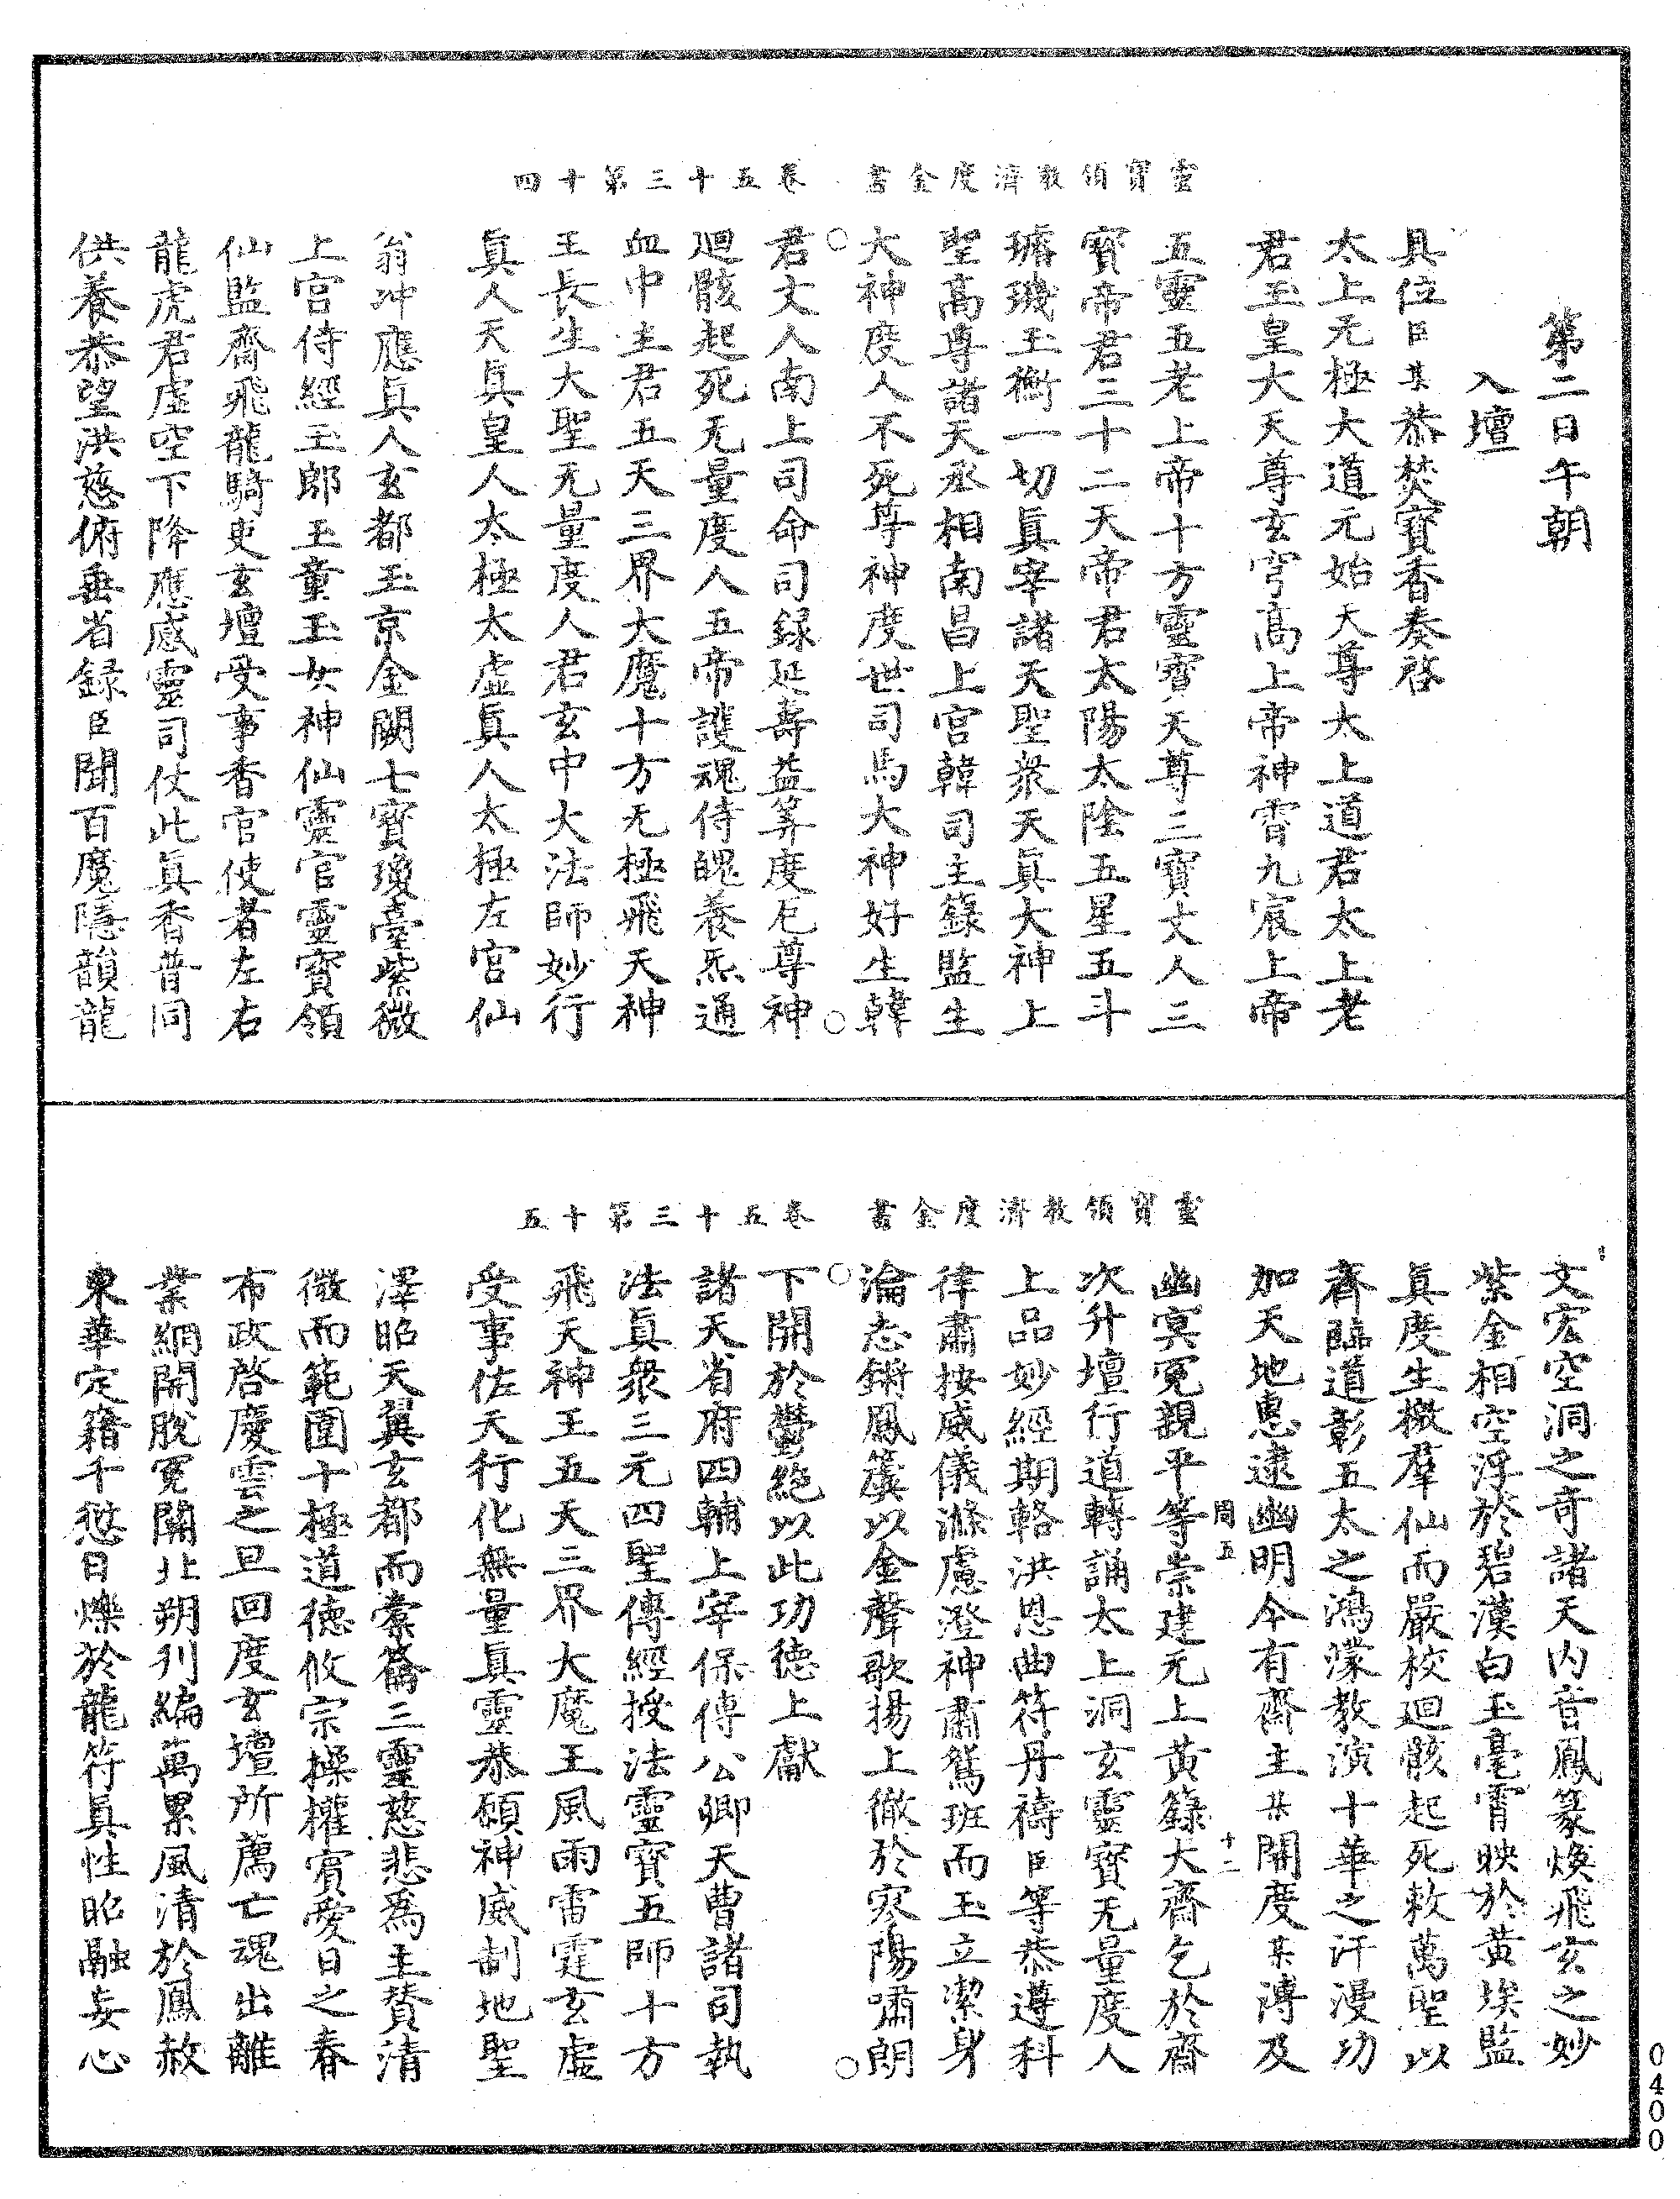 靈寶領教濟度金書　卷五十三第十四
第二日午朝
入壇
具位臣某恭焚寶香奏啓
太上无極大道元始天尊大上道君太上老
君玉皇大天尊玄穹高上帝神霄九宸上帝
五靈五老上帝十方靈寶天尊三寶丈人三
寶帝君三十二天帝君太陽太陰五星五斗
璿璣玉衡一切眞宰諸天聖衆天眞大神上
聖高尊諸天丞相南昌上宮韓司主籙監生
大神度人不死尊神度世司馬大神好生韓
君丈人南上司命司録延壽益筭度厄尊神
廻骸起死无量度人五帝護魂侍魄養炁通
血中主君五天三界大魔十方无極飛天神
王長生大聖无量度人君玄中大法師妙行
眞人天眞皇人太極太虛眞人太極左宮仙
翁冲應眞人玄都玉京金闕七寶瓊臺紫微
上宮侍經玉郎玉童玉女神仙靈官靈寶領
仙監齋飛龍騎吏玄壇受事香官使者左右
龍虎君虛空下降應感靈司仗此眞香普同
供養恭望洪慈俯垂省録臣聞百魔隱韻龍
靈寶領教濟度金書　卷五十三第十五
文宏空洞之奇諸天内音鳳篆煥飛玄之妙
紫金相空浮於碧漢白玉毫霄映於黃埃監
眞度生檄羣仙而嚴校廻骸起死敕萬聖以
齊臨道彰五太之鴻濛教演十華之汗漫功
加天地惠逮幽明今有齋主某開度某溥及
幽冥冤親平等崇建元上黃籙大齋乞於齋
次升壇行道轉誦太上洞玄靈寶无量度人
上品妙經期輅洪恩曲符丹禱臣等恭遵科
律肅按威儀滌慮澄神肅鴛班而玉立潔身
淪志鏘鳳簴以金聲歌揚上徹於寒陽嘯朗
下開於鬱絶以此功德上獻
諸天省府四輔上宰保傅公卿天曹諸司執
法眞衆三元四聖傳經授法靈寶五師十方
飛天神王五天三界大魔王風雨雷霆玄虛
受事佐天行化無量眞靈恭願神威制地聖
澤昭天翼玄都而橐籥三靈慈悲爲主贊清
微而範圍十極道德攸宗操權賓愛日之春
布政啓慶雲之旦回度玄壇所薦亡魂出離
業網開脫冤關北朔刋編萬累風清於鳳赦
東華定籍千愆日爍於龍符眞性昭融妄心
周五　十二
0400